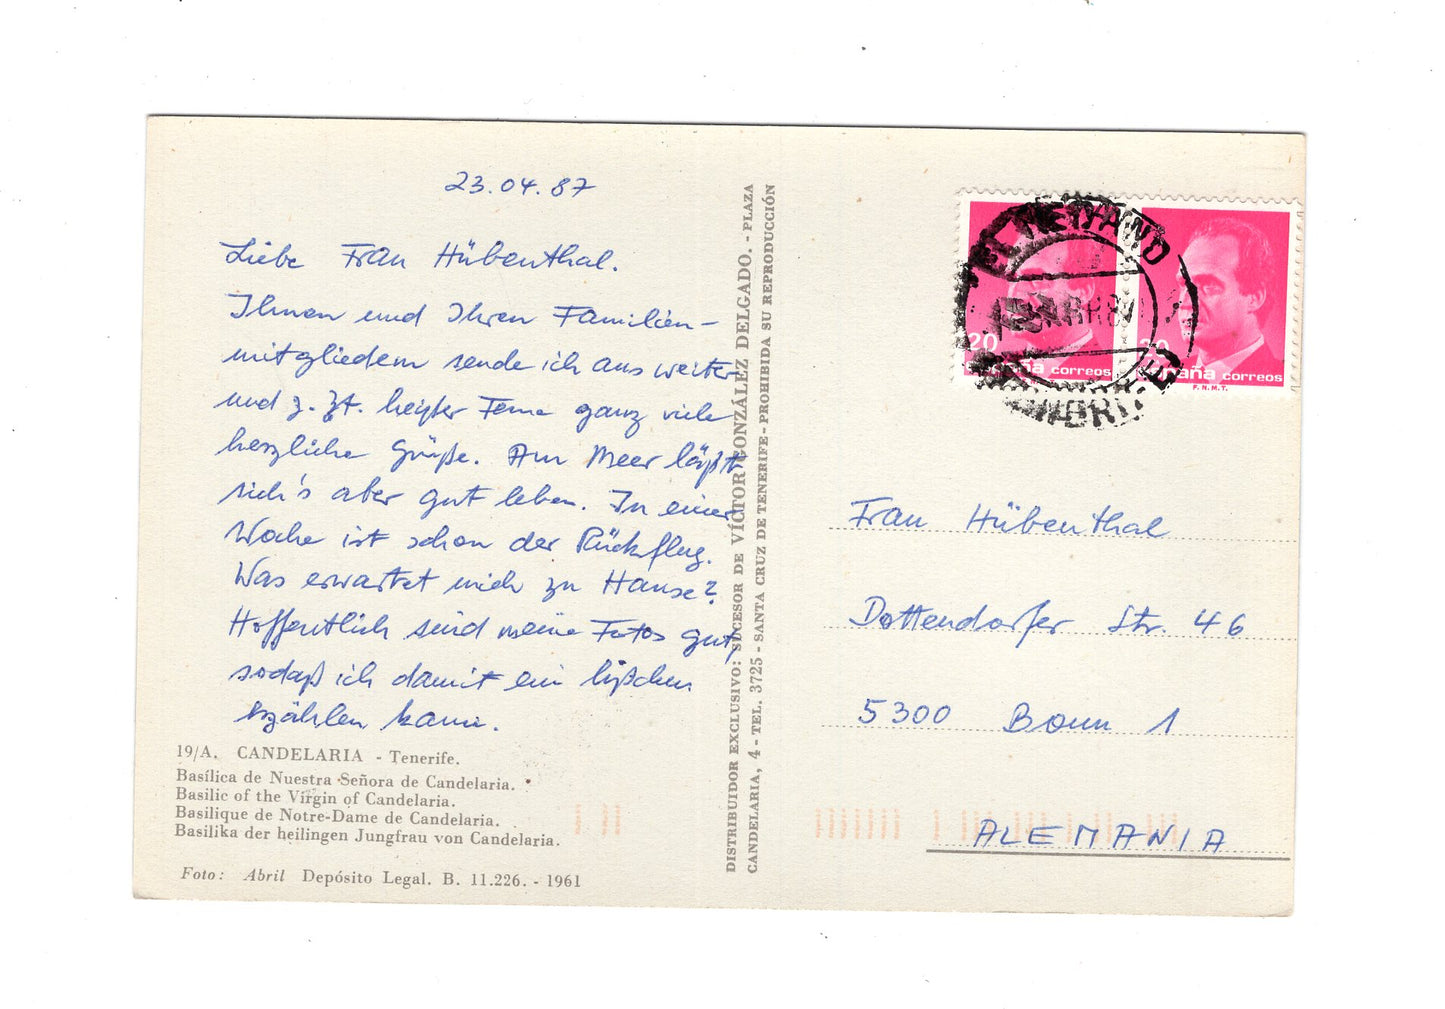 23.04.87
Liebe Frau Hübenthal.
Ihnen und Ihren Familien-
mitgliedern sende ich aus weiter
und z. Zt. heißer Ferne ganz viele
herzliche Grüße. Am Meer läßt
sich's aber gut leben. In einer
Woche ist schon der Rückflug.
Was erwartet mich zu Hause?
Hoffentlich sind meine Fotos gut,
sodaß ich damit ein bißchen
erzählen kann.
19/A. CANDELARIA - Tenerife.
Basílica de Nuestra Señora de Candelaria.
Basilic of the Virgin of Candelaria.
Basilique de Notre-Dame de Candelaria.
Basilika der heilingen Jungfrau von Candelaria.
Foto: Abril Depósito Legal. B. 11.226. - 1961
DISTRIBUIDOR EXCLUSIVO: SUCESOR DE VÍCTOR GONZÁLEZ DELGADO. - PLAZA
CANDELARIA, 4 - TEL. 3725 - SANTA CRUZ DE TENERIFE - PROHIBIDA SU REPRODUCCIÓN
20
España correos
20
España correos
F.N.M.T.
Frau Hübenthal
Dottendorfer Str. 46
5300 Bonn 1
ALEMANIA